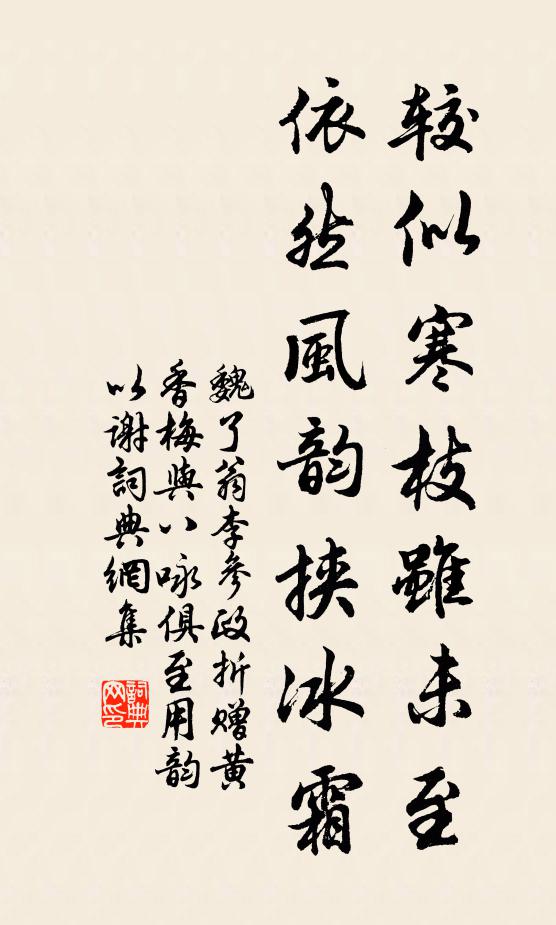 較似寒枝雖未至
依然風韵挾冰霜
魏了翁李參政折贈黄
香梅與八咏俱至用韵
以謝詞典網集
詞典
网印